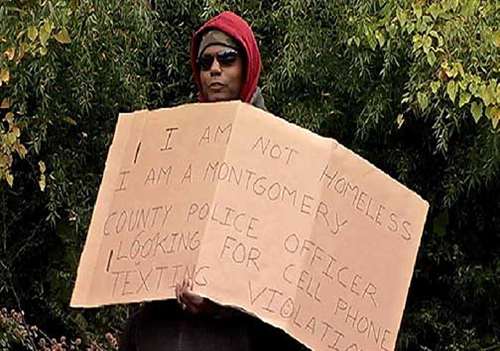 I AM NOT HOMELESS
I AM A MONTGOMERY
COUNTY POLICE OFFICER
LOOKING FOR CELL PHONE
TEXTING VIOLATION